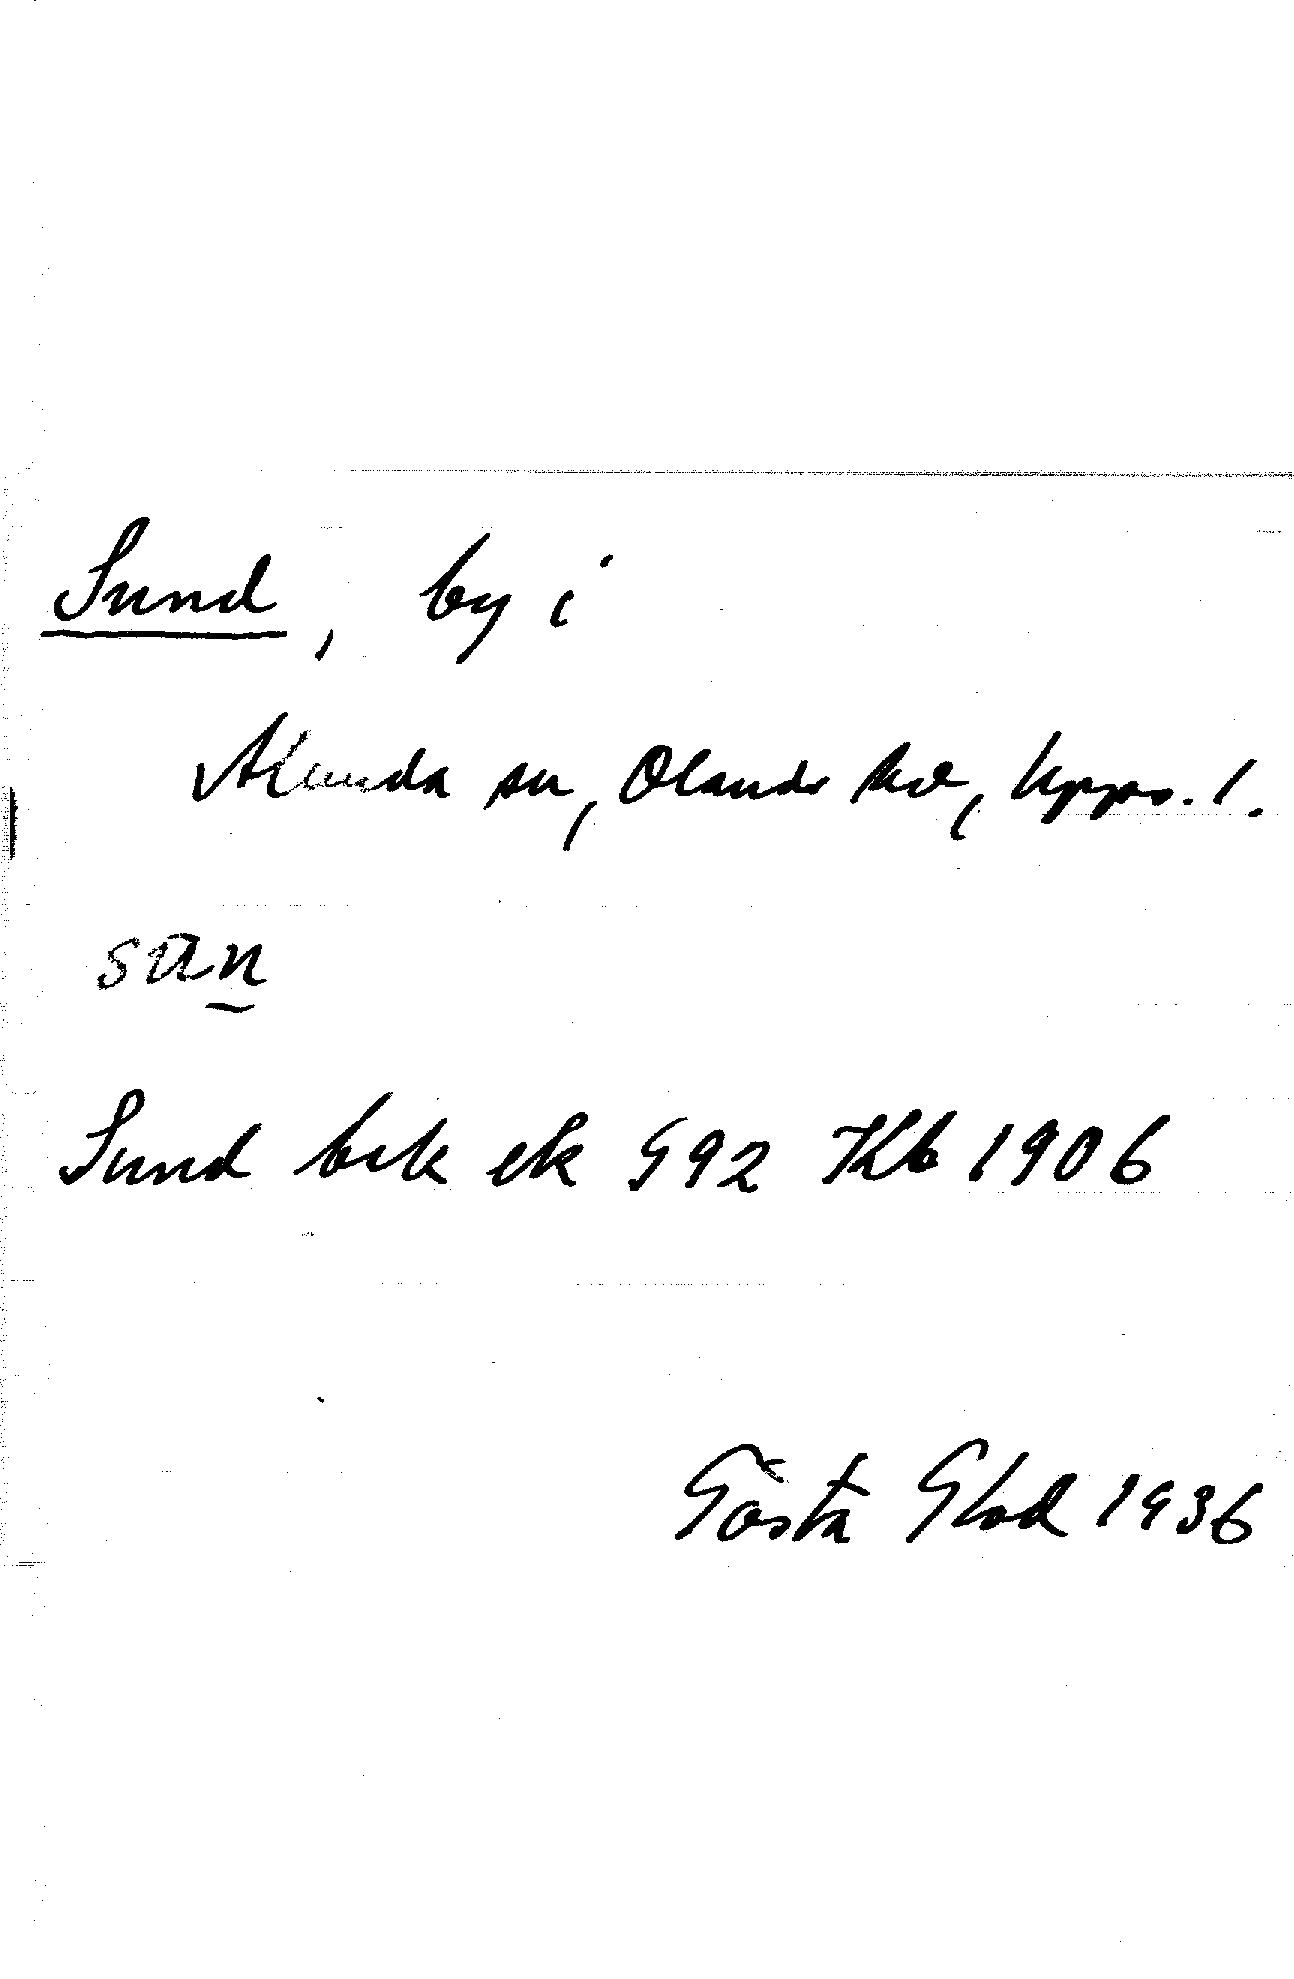 Sund, by i
Alunda sn, Olands hd, Upps. l.
sūn̰
Sund bek ek 592 Kb 1906
Gösta Glad 1936